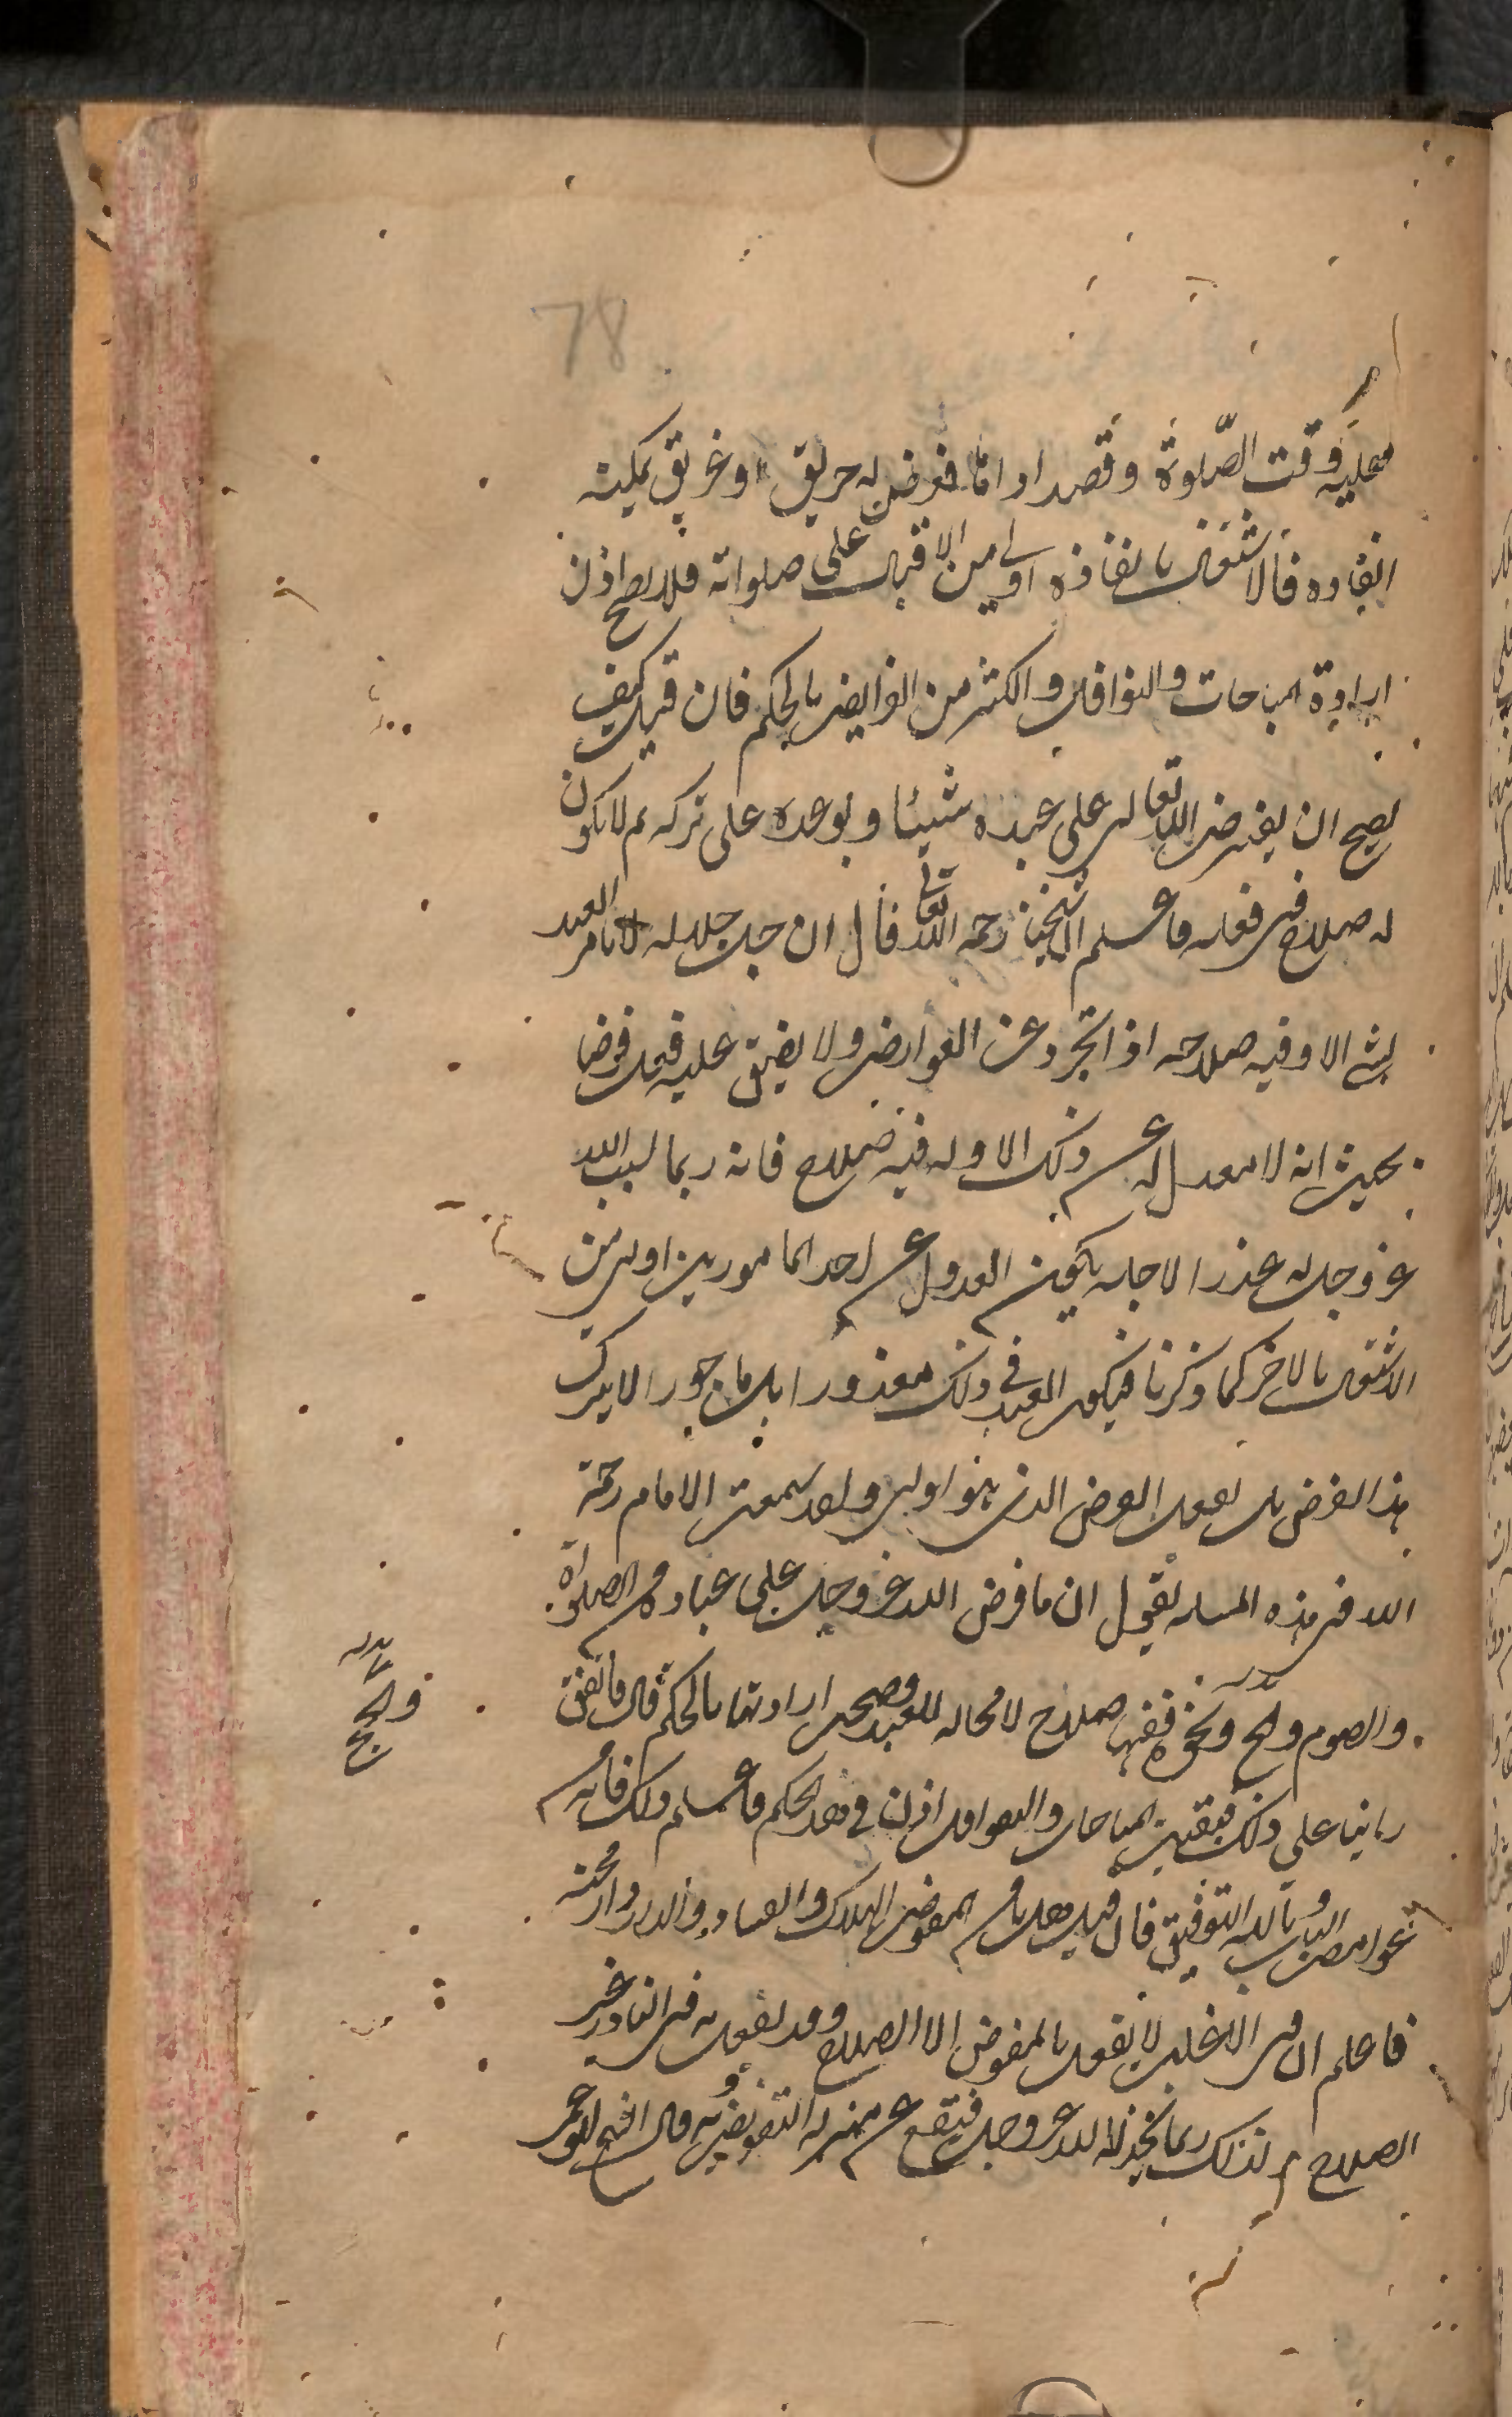 78
عليه وقت الصّلوة وقصد اداءها فعرض له حريق او غريق يمكنه
انقاذه فالاشتغال بانقاذه اولى من الاقبال على صلواته فلا يصح اذن
ارادة المباحات والنوافل والكثير من الفرايض بالحكم فان قيل كيف
يصح ان يفترض الله تعالى على عبده شيئا ويوعده على تركه ثم لا يكون
له صلاح في فعله فاعلم ان شيخنا رحمه الله تعالى قال ان جل جلاله لا يامر العبد
بشئ الا وفيه صلاحه اذا تجرد عن العوارض ولا يضيق عليه فعل فرضا
بحيث انه لا معدل له عن ذلك الا وله فيه صلاح فانه ربما يسبب الله
عز وجل له عذرا لاجله يكون العدول عن احد المامورين اولى من
الاشتغال بالاخر كما ذكرنا فيكون العبد في ذلك معذورا بل ماجورا لا بترك
هذا الفرض بل بفعل الفرض الذى هو اولى ولقد سمعت الامام رحمة
الله في هذه المسئله يقول ان ما فرض الله عز وجل على عباده من الصلواة
والصوم والحج ونحوه ففيها صلاح لا محاله للعبد وصحت ارادتها بالحكم قال فاتفق
راينا على ذلك فبقيت المباحات والنوافل اذن في هذا الحكم فاعلم ذلك فانه من
غوامض الباب وبالله التوفيق فان قيل هل يامن المفوض الهلاك والفساد والدار دار محنة
فاعلم ان في الاغلب لا يفعل بالمفوض الا الصلاح وقد يفعل به في النادر غير
الصلاح لذلك ربما يخذله الله عز وجل فيقع عن منزله التفويض وبه قال الشيخ ابو عمر
والحج
بدله